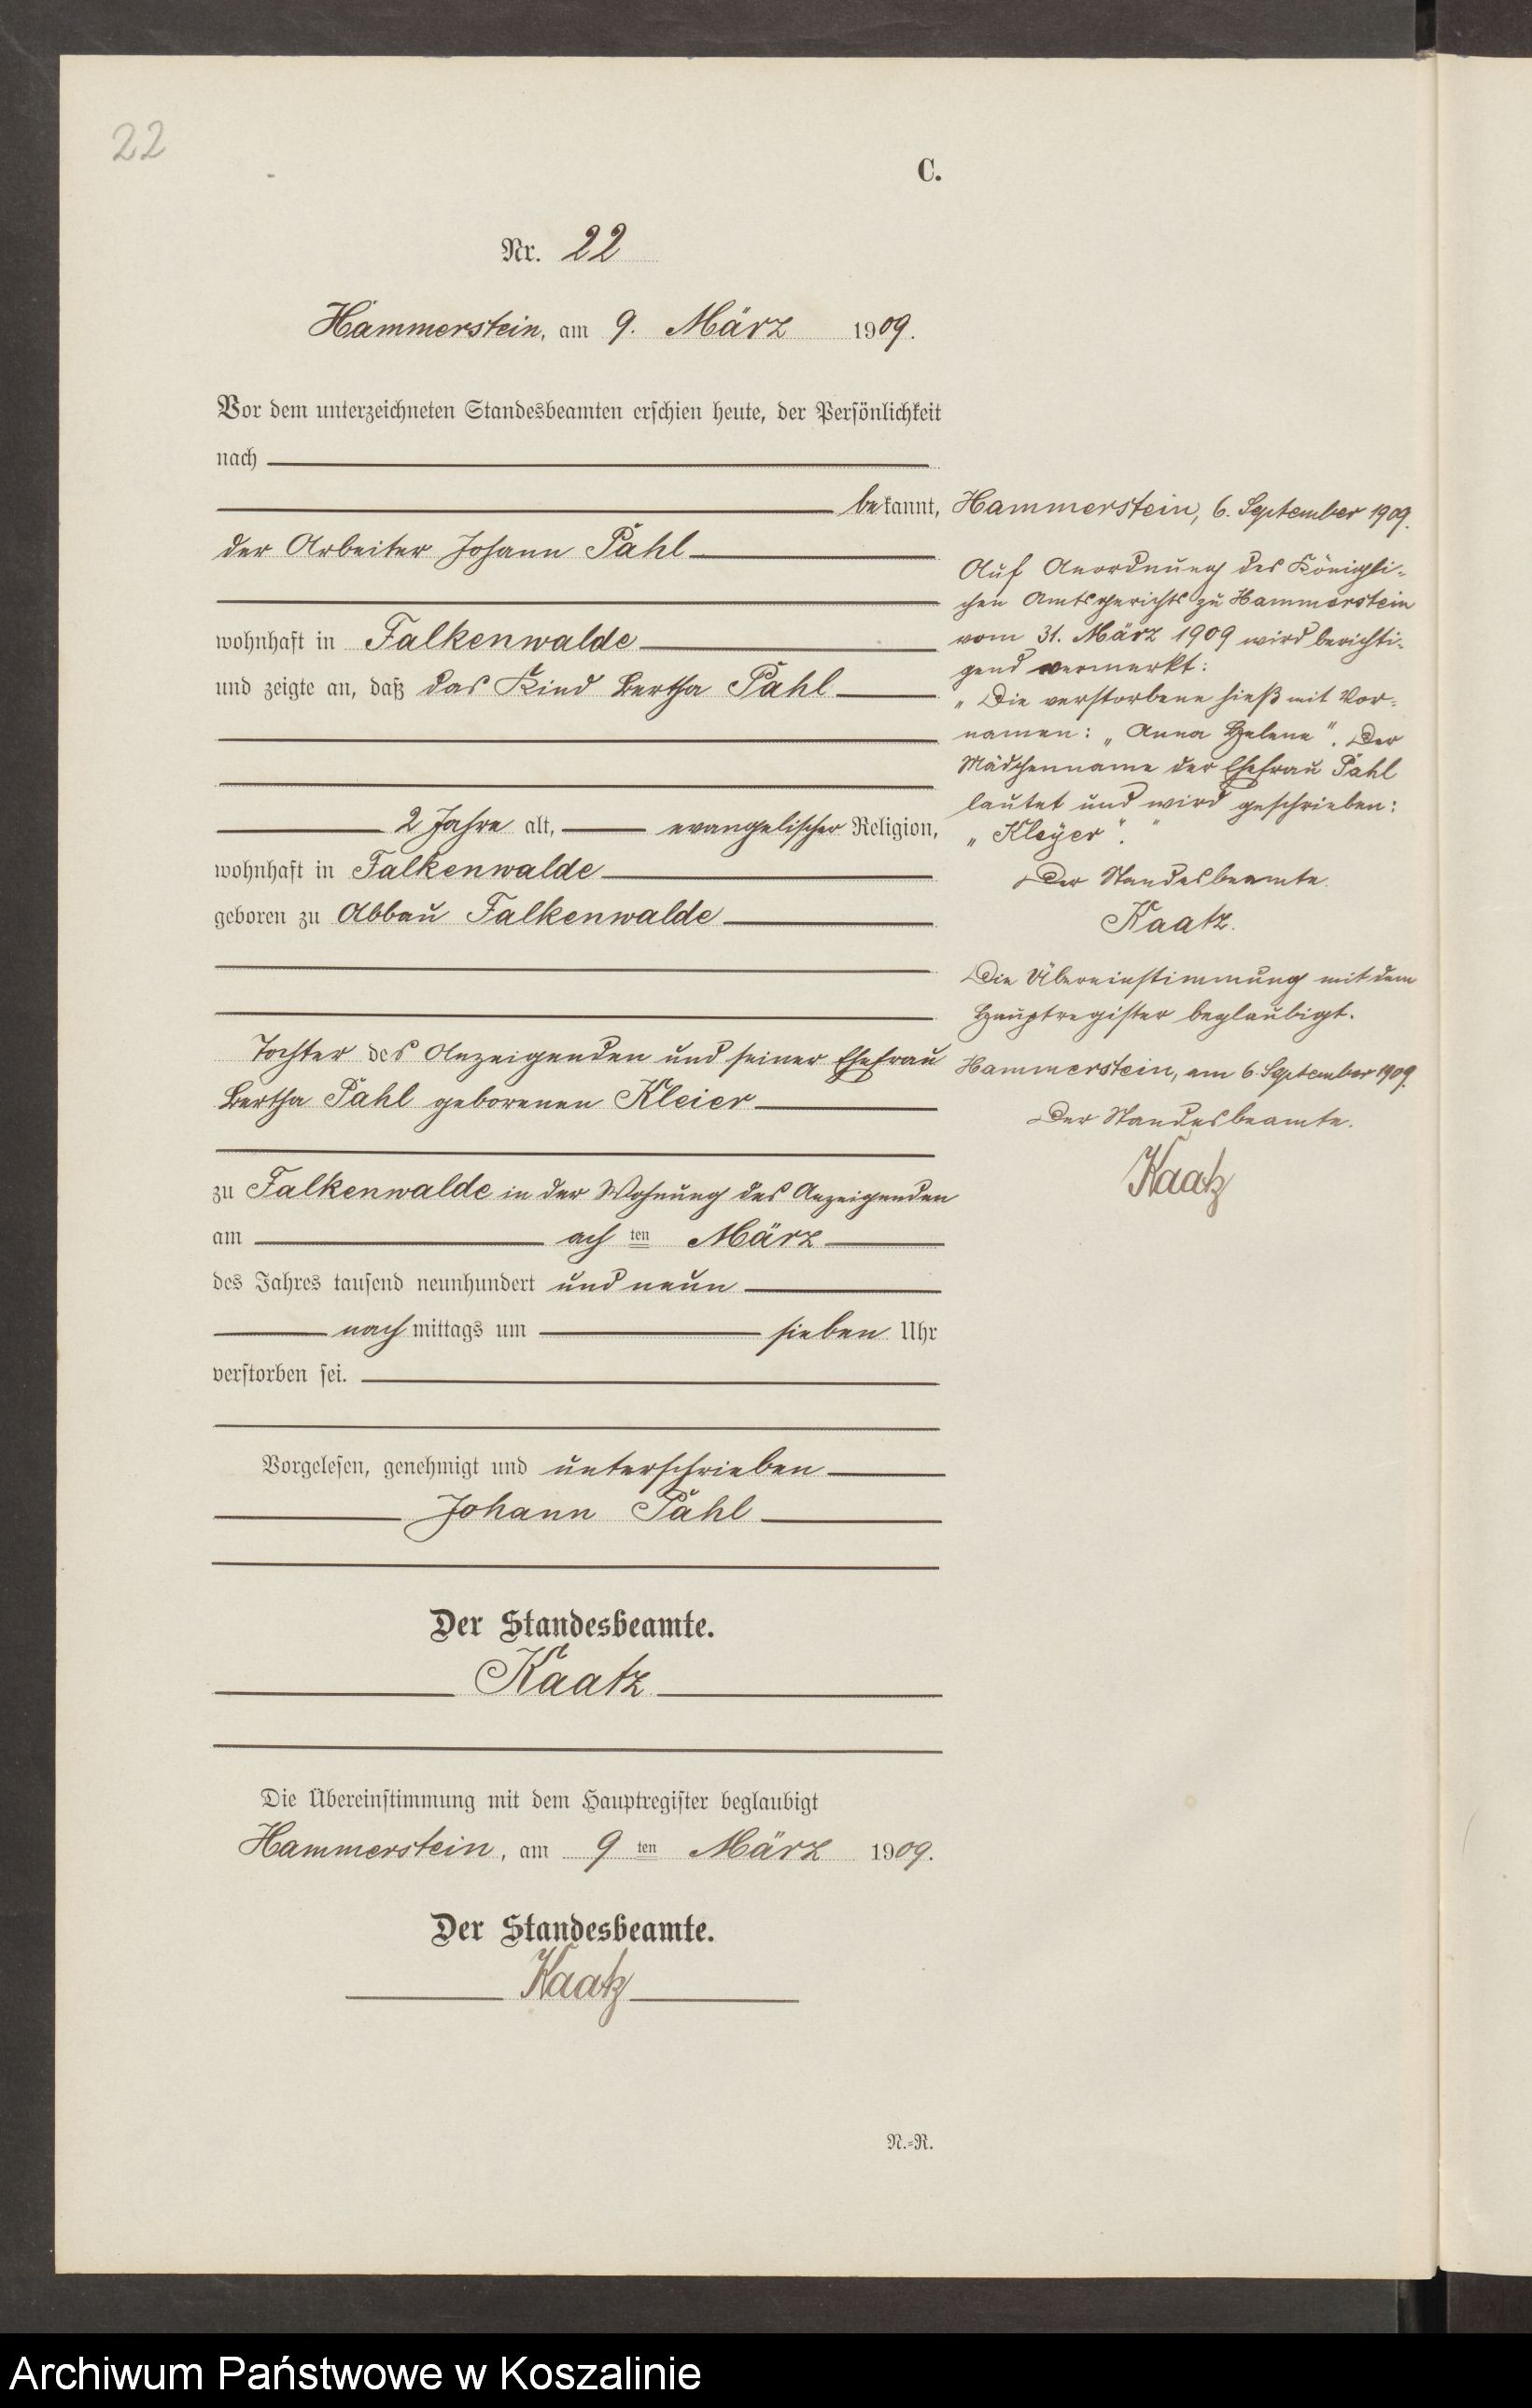 22
C.
Nr. 22
Hammerstein, am 9. März 1909.
Vor dem unterzeichneten Standesbeamten erschien heute, der Persönlichkeit
nach
bekannt,
der Arbeiter Johann Pahl
wohnhaft in Falkenwalde
und zeigte an, daß das Kind Bertha Pahl
2 Jahre alt, evangelischer Religion,
wohnhaft in Falkenwalde
geboren zu Abbau Falkenwalde
Tochter des Anzeigenden und seiner Ehefrau
Bertha Pahl geborenen Kleier
zu Falkenwalde in der Wohnung des Anzeigenden
am ach ten März
des Jahres tausend neunhundert und neun
nach mittags um sieben Uhr
verstorben sei.
Vorgelesen, genehmigt und unterschrieben
Johann Pahl
Der Standesbeamte.
Kaatz
Die Übereinstimmung mit dem Hauptregister beglaubigt
Hammerstein, am 9 ten März 1909.
Der Standesbeamte.
Kaatz
N.=R.
Hammerstein, 6. September 1909.
Auf Anordnung des Königli-
chen Amtsgerichts zu Hammerstein
vom 31. März 1909 wird berichti-
gend vermerkt:
„Die verstorbene hieß mit Vor-
namen: „Anna Helene". Der
Mädchenname der Ehefrau Pahl
lautet und wird geschrieben:
„Kleyer"."
Der Standesbeamte.
Kaatz.
Die Übereinstimmung mit dem
Hauptregister beglaubigt.
Hammerstein, am 6. September 1909.
Der Standesbeamte.
Kaatz
Archiwum Państwowe w Koszalinie